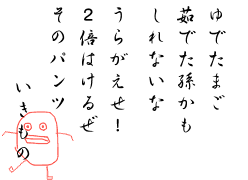 ゆでたまご
茹でた孫かも
しれないな
うらがえせ！
２倍はけるぜ
そのパンツ
いきもの